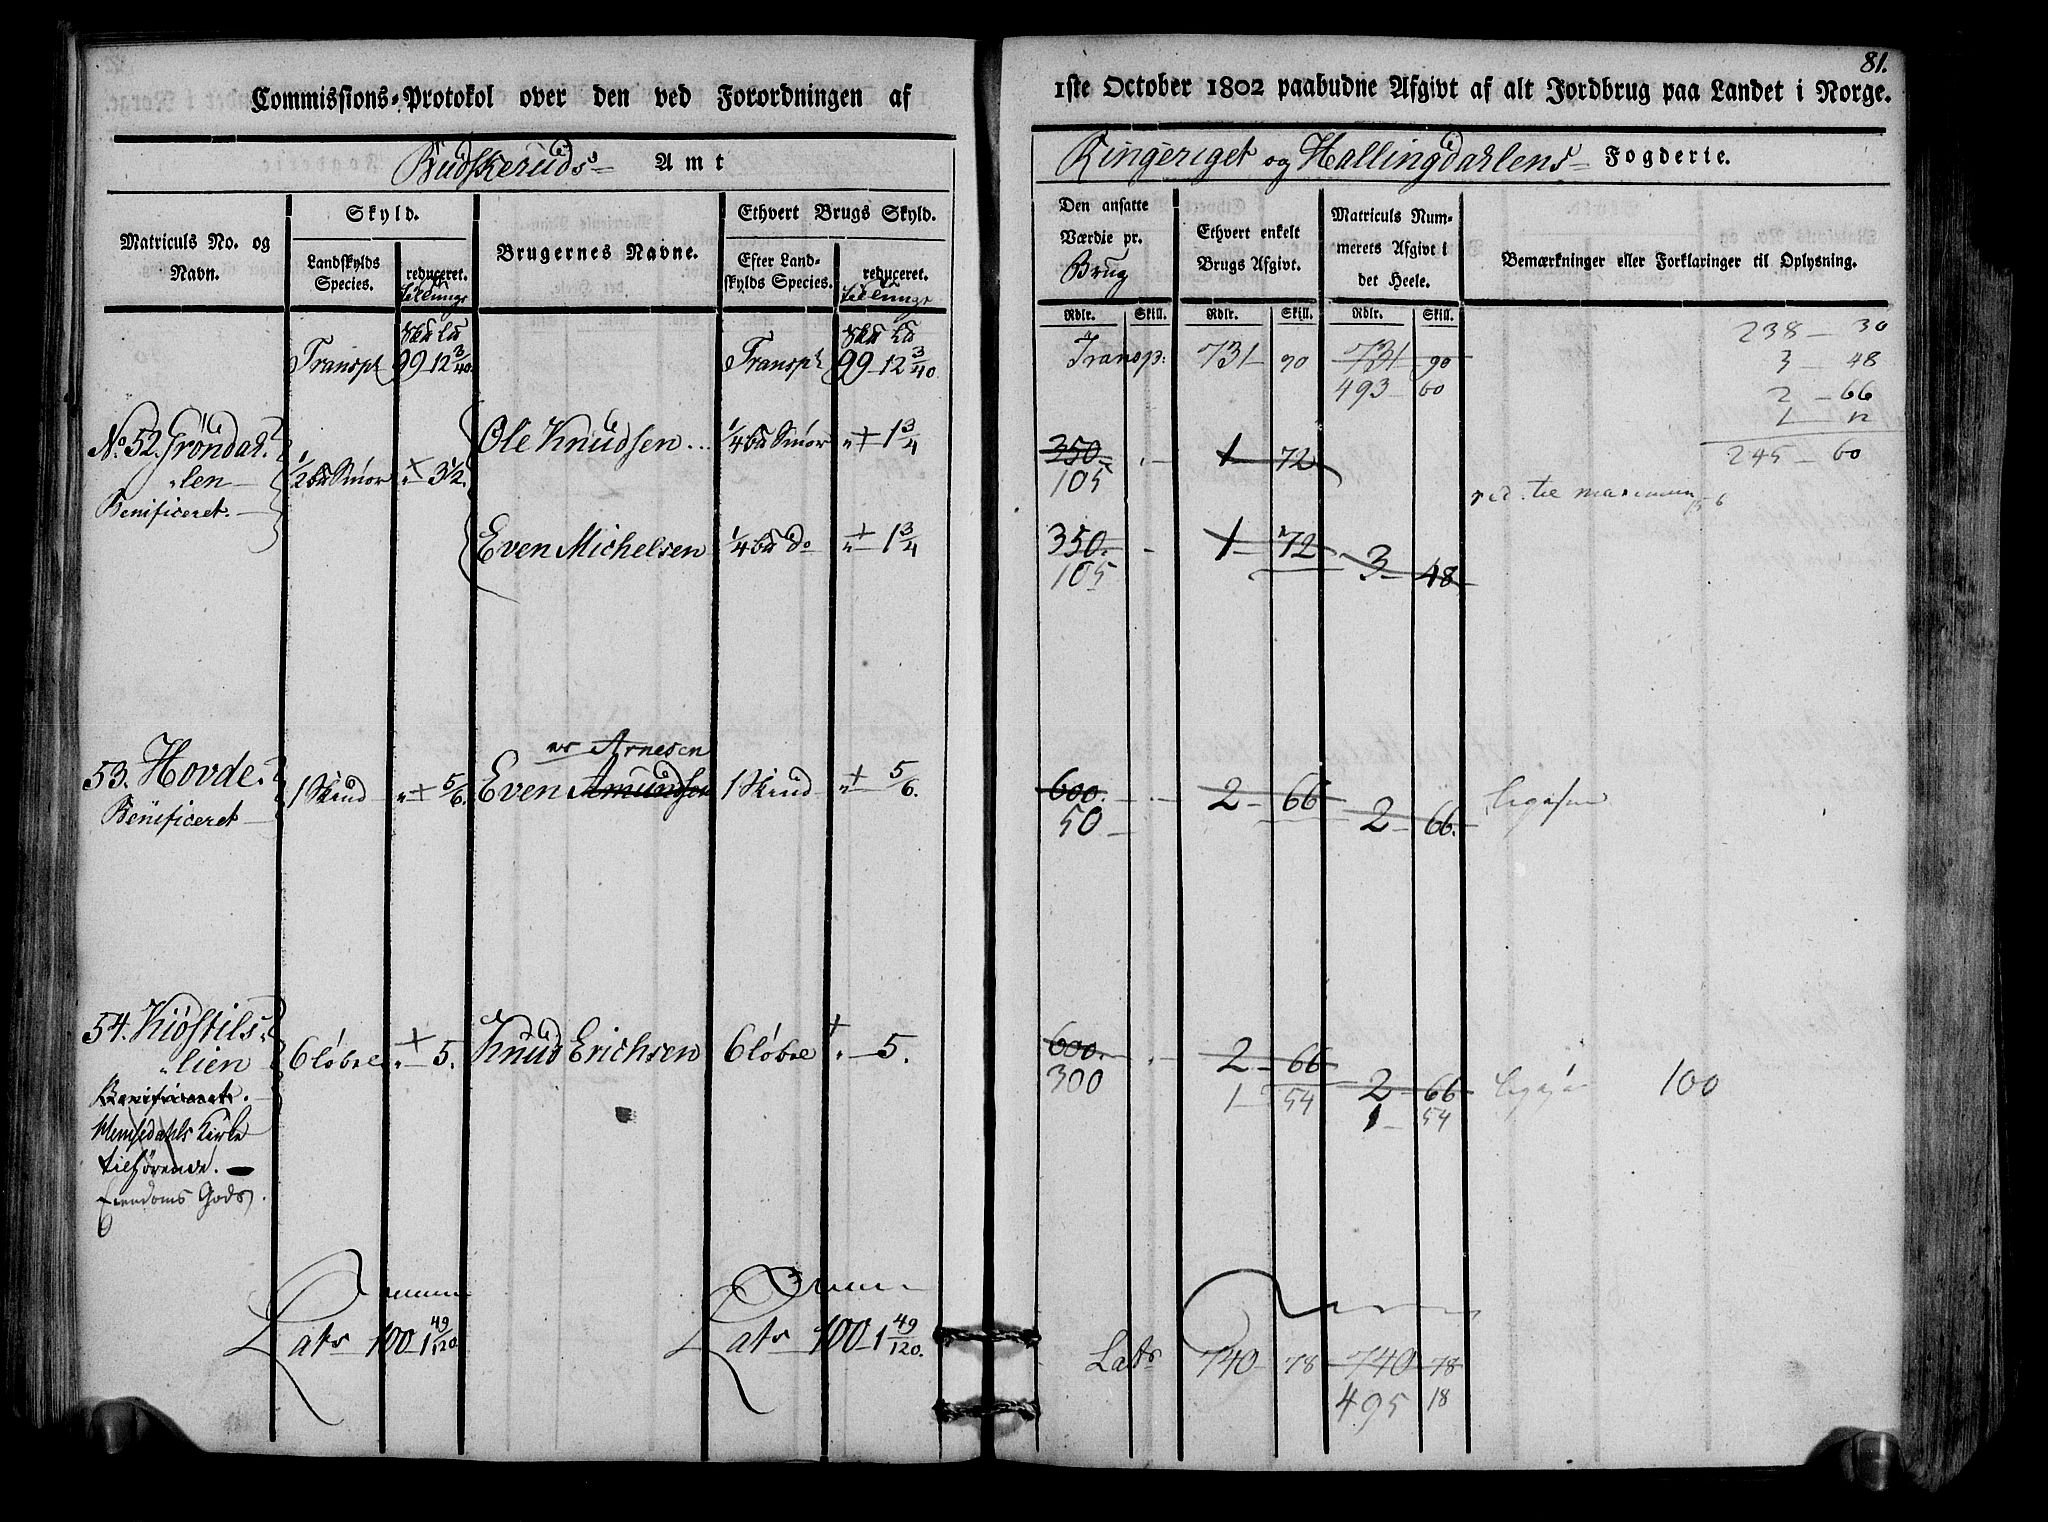 81.
Commissions-Protokol over den ved Forordningen af
1ste October 1802 paabudne Afgivt af alt Jordbrug paa Landet i Norge.
Budskeruds Amt
Ringeriget og Hallingdahlens Fogderie.
Matriculs No. og Navn.
Skyld.
Landskylds Species.
reduceret.
Brugernes Navne.
Ethvert Brugs Skyld.
Efter Landskylds Species.
reduceret.
Den ansatte Værdie pr. Brug
Ethvert enkelt Brugs Afgivt.
Matriculs Nummerets Afgivt i det Heele.
Bemærkninger eller Forklaringer til Oplysning.
Rdlr. Skill. Rdlr. Skill. Rdlr. Skill.
Transpt 99 - 12 3/40 Transpt 99 - 12 3/40. Transp: 731 - 90 731 - 90
493 60
238 - 30
3 - 48
2 - 66
1 - 12
245 - 60
No. 52. Gröndah-
len
Benificeret.
1/2 Smör 3 1/2.
Ole Knudsen 1/4 Smör 1 3/4 350. 1 - 72
105
Even Michelsen 1/4 do 1 3/4 350. 1 - 72 3 - 48
105
53. Hovde.
Benificeret
1 Skind 5/6.
Arnesen
Even Amundsen 1 Skind 5/6. 600. 2 - 66 2 - 66.
50
54. Kiöstils-
lien
Benificeret.
Hemsedahls Kirke
tilhørende.
Eiendoms Gods.
6 löbse 5. Knud Erichsen 6 löbse 5. 600. 2 - 66 2 - 66
300 1 - 54 1 - 54
100
Lats 100 - 1 49/120. Lats 100 - 1 49/120. Lats 740 - 78 740 - 78
495 18